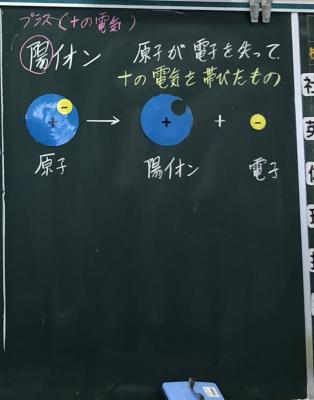 プラス(+の電気)
陽イオン 原子が電子を失って、
+の電気を帯びたもの
+ - → + + -
原子 陽イオン 電子
社
英
理